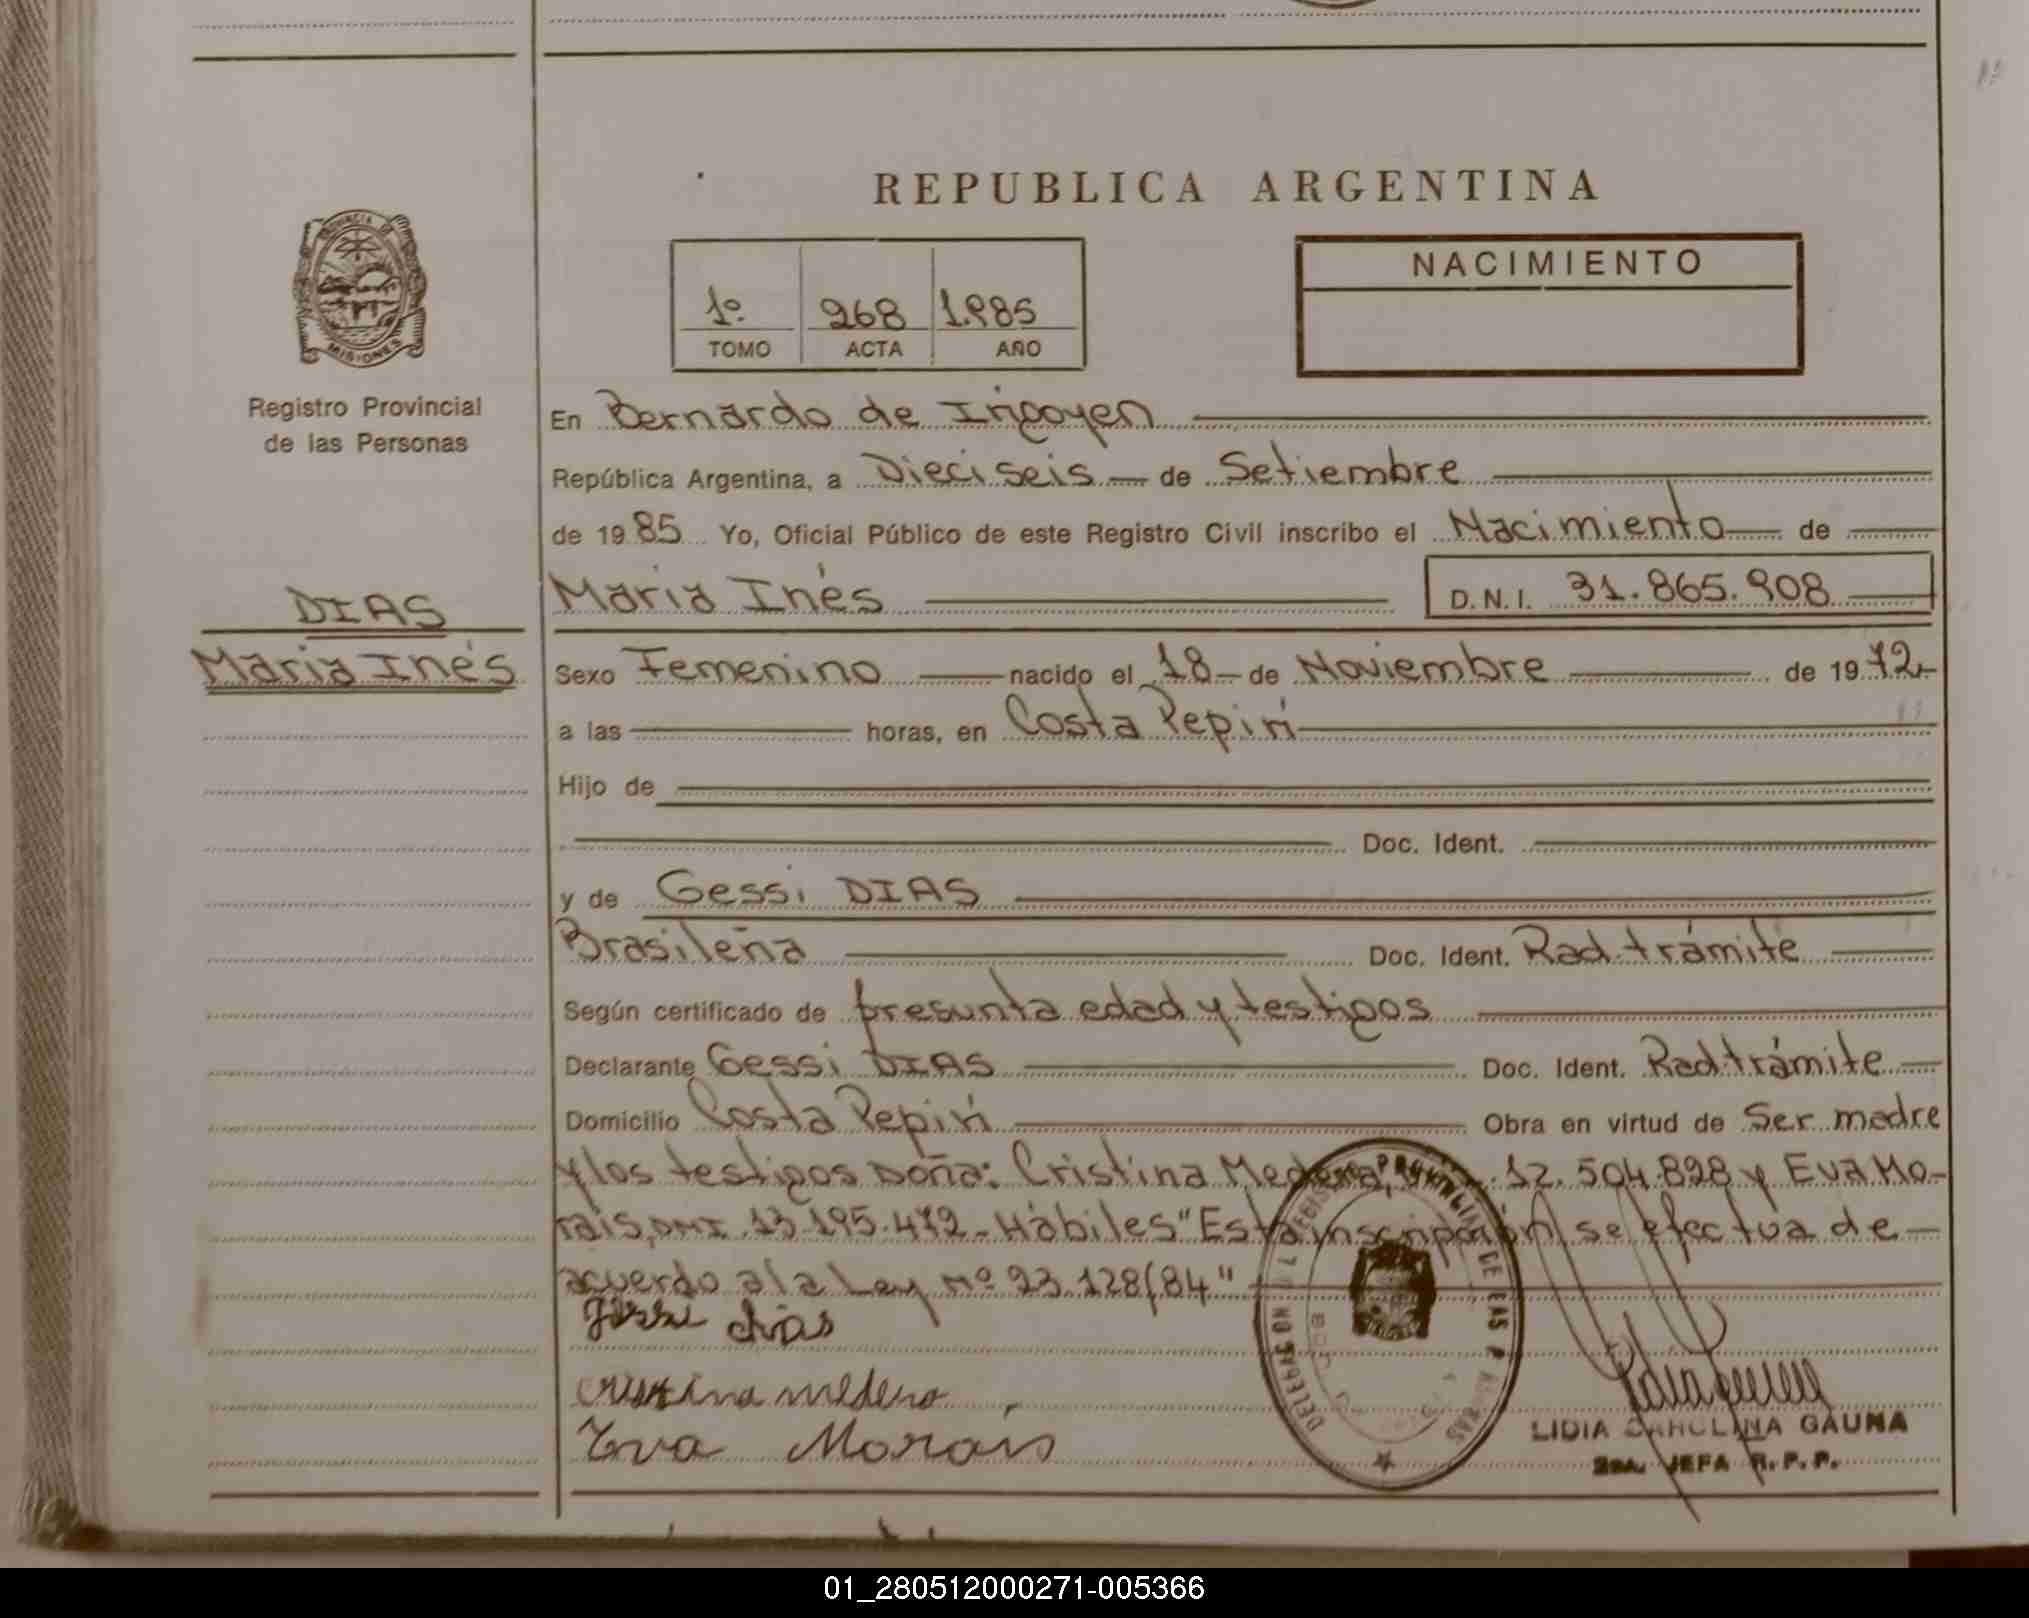 REPUBLICA ARGENTINA
PROVINCIA DE
MISIONES
1º 268 1.985
TOMO ACTA AÑO
NACIMIENTO
Registro Provincial
de las Personas
En Bernardo de Irigoyen
República Argentina, a Dieciseis de Setiembre
de 1985 Yo, Oficial Público de este Registro Civil inscribo el Nacimiento de
Maria Inés D.N.I. 31.865.908
DIAS
Maria Inés
Sexo Femenino nacido el 18 de Noviembre de 1972
a las horas, en Costa Pepirí
Hijo de
Doc. Ident.
y de Gessi DIAS
Brasileña Doc. Ident. Rad. trámite
Según certificado de presunta edad y testigos
Declarante Gessi DIAS Doc. Ident. Rad. trámite
Domicilio Costa Pepirí Obra en virtud de Ser madre
y los testigos Doña: Cristina Medera, 12.504.828 y Eva Mo-
rais, DNI. 13.195.472 - Hábiles "Esta inscripción se efectúa de
acuerdo a la Ley Nº 23.128/84"
dias
Cristina medera
Eva Morais
LIDIA CAROLINA GAUNA
JEFA R.P.P.
01_280512000271-005366